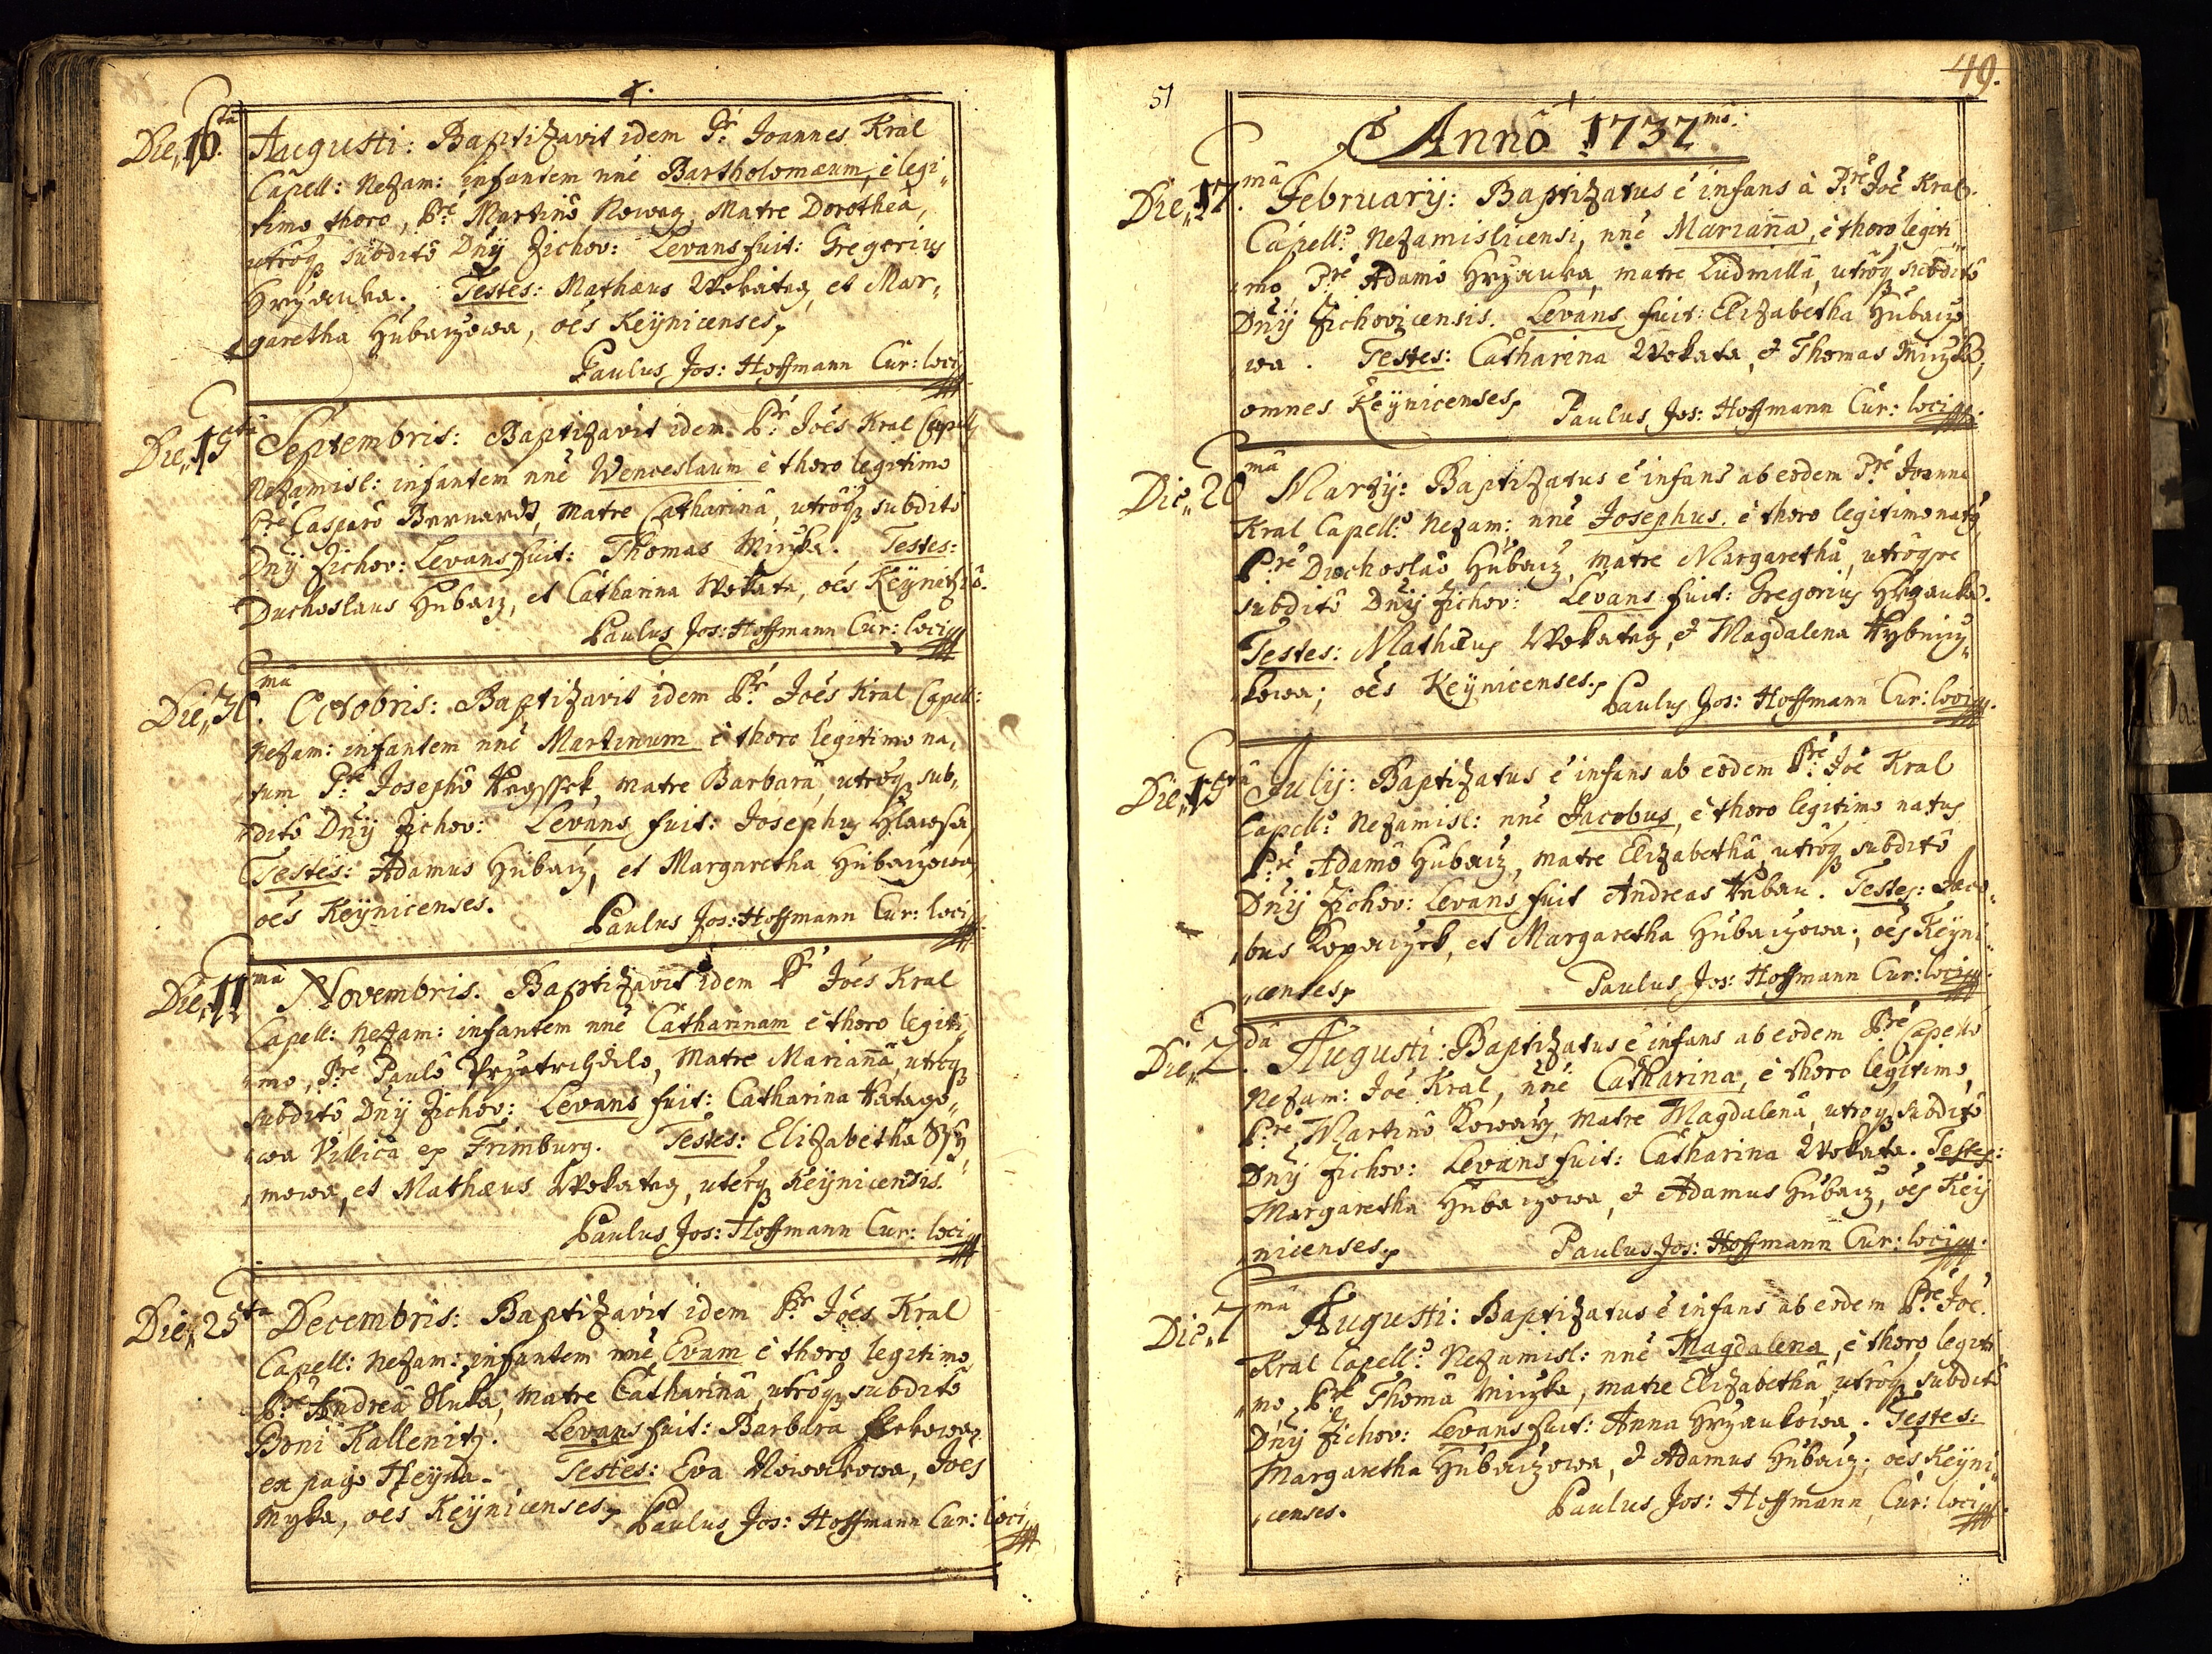 Die 16ta Augusti: Baptizavit idem Pr Joannes Kral
Capell: Nezam: infantem nnè Bartholomæum, è legi„
timo thoro, Pre Martinô Kowarz, Matre Dorotheâ,
utrôq; subditô Dnÿ Zichov: Levans fuit: Gregorius
Hrzauka. Testes: Mathæus Wokatey, et Mar„
garetha Hubaczowa, oes Keÿnicenses,
Paulus Jos: Hoffmann Cur: loci
Die 15ta Septembris: Baptizavit idem Pr Joês Kral Capell
Nezamisl: infantem nnè Wenceslaum è thoro legitimo
Pre Casparô Bernardt, Matre Catharinâ, utrôq; subditô
Dnÿ Zichov: Levans fuit: Thomas Miczka. Testes:
Duchoslaus Hubacz, et Catharina Wokata, oês
Paulus Jos: Hoffmann Cur: loci
Die 30 ma Octobris: Baptizavit idem Pr Joês Kral Capell:
Nezam: infantem nnè Martinum è thoro legitimo na„
tum Pre Josephô, matre Barbarâ, utrôq; sub„
ditô Dnÿ Zichov: Levans fuit: Josephus Hlawsa,
Testes: Adamus Hubacz, et Margaretha Hubaczowa,
oês Keÿnicenses.
Paulus Jos: Hoffmann Cur: loci
Die 11 ma Novembris. Baptizavit idem Pr Joês Kral
Capell: Nezam: infantem nnè Catharinam è thoro legiti„
mo, Pre Paulô, Matre Mariannâ, utrôq;
subditô Dnÿ Zichov: Levans fuit: Catharina
Villica ex Frimburg. Testes: Elizabetha
mowa, et Mathæus Wokatey, uterq; Keÿnicensis.
Paulus Jos: Hoffmann Cur: loci
Die 25ta Decembris: Baptizavit idem Pr Joês Kral
Capell: Nezam: infantem nnè Evam è thoro legitimo,
Pre Andreâ Huka, Matre Catharinâ, utrôq; subditô
Doni Kallenitz. Levans fuit: Barbara
ex pago. Testes: Eva Nowakowa, Joês
Myka, oês Keÿnicenses,
Paulus Jos: Hoffmann Cur: loci
51
49.
Annô 1737mô.
Die 17. mâ Februarÿ: Baptizatus ê infans à Pre Joê Kral
Capellô Nezamislicensi, nnè Marianna, è thoro legiti„
mo Pre Adamô Hrzauka, matre Ludmillâ, utrôq; subditô
Dnÿ Zichovicensis. Levans fuit: Elizabetha Hubaczo„
wa. Testes: Catharina Wokata, & Thomas Miczka,
omnes Keÿnicenses,
Paulus Jos: Hoffmann Cur: loci
Die 20 mâ Martÿ: Baptizatus ê infans ab eodem Pre Joanne
Kral Capellô Nezam: nnè Josephus, è thoro legitimo natus,
Pre Duchoslaô Hubacz, matre Margarethâ, utrôque
subditô Dnÿ Zichov: Levans fuit: Gregorius Hrzauka.
Testes: Mathæus Wokatey, & Magdalena
kowa; oês Keÿnicenses,
Paulus Jos: Hoffmann Cur: loci
Die 15ta Julÿ: Baptizatus ê infans ab eodem Pre Joê Kral
Capellô Nezamisl: nnè Jacobus, è thoro legitimo natus
Pre Adamô Hubacz, matre Elizabethâ utrôq; subditô
Dnÿ Zichov: Levans fuit Andreas. Testes: Jaco„
bus Kopaczek, et Margaretha Hubaczowa; oês Keÿni„
„censes,
Paulus Jos: Hoffmann Cur: loci
Die 2. dâ Augusti: Baptizatus ê infans ab eodem Pre Capellô
Nezam: Joê Kral, nnè Catharina, è thoro legitimo,
Pre Martinô Kowarz, Matre Magdalenâ, utroq; subditô
Dnÿ Zichov: Levans fuit: Catharina Wokata. Testes:
Margaretha Hubaczowa, & Adamus Hubacz, oês Keÿ
nicenses,
Paulus Jos: Hoffmann Cur: loci
Die 7 mâ Augusti: Baptizatus ê infans ab eodem Pre Joê
Kral Capellô Nezamisl: nnè Magdalena, è thoro legiti
„mo, Pre Thomâ Miczka, matre Elizabethâ, utrôq; subditô
Dnÿ Zichov: Levans fuit: Anna Hrzaukowa. Testes:
Margaretha Hubaczowa, & Adamus Hubacz; oês Keÿni„
„censes.
Paulus Jos: Hoffmann Cur: loci